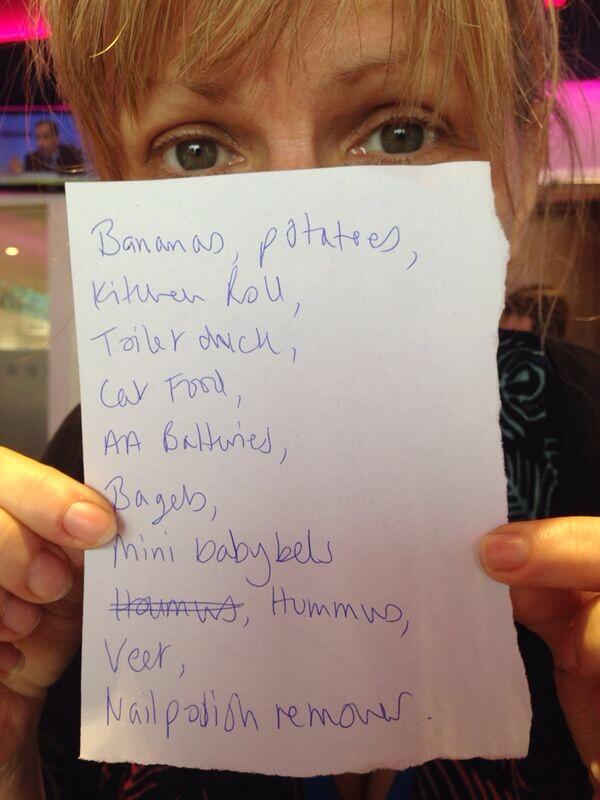 Bananas, potatoes,
Kitchen Roll,
Toilet duck,
Cat Food,
AA Batteries,
Bagels,
Mini babybels
Houmus, Hummus,
Veet,
Nail polish remover.